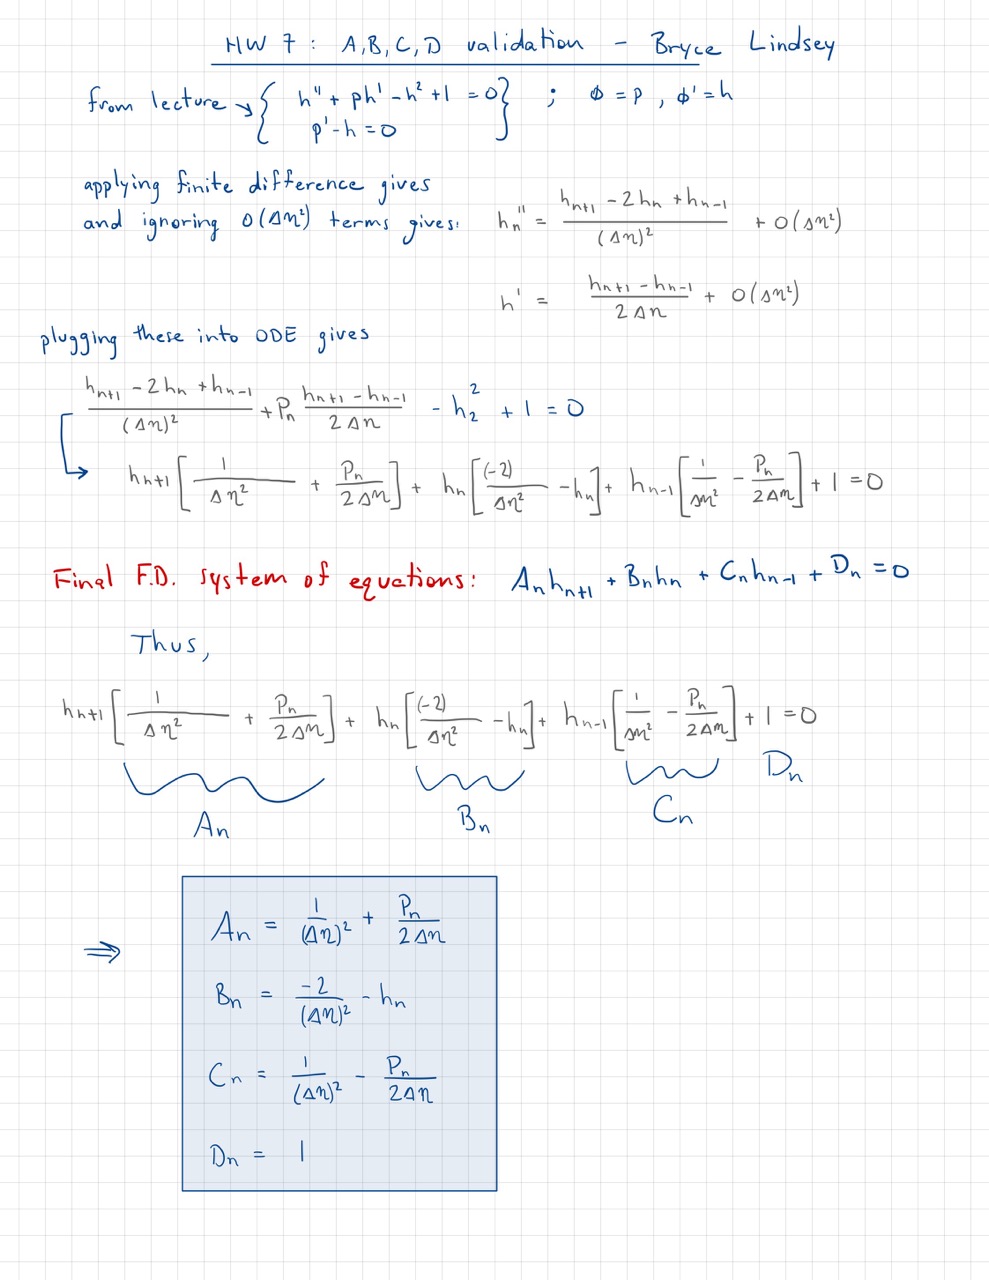 HW 7 : A,B,C,D validation - Bryce Lindsey
from lecture → { h'' + ph' - h² + 1 = 0 } ; Φ = p , Φ' = h
p' - h = 0
applying finite difference gives
and ignoring O(Δη²) terms gives:
hₙ'' = (hₙ₊₁ - 2hₙ + hₙ₋₁)/(Δη)² + O(Δη²)
h' = (hₙ₊₁ - hₙ₋₁)/(2Δη) + O(Δη²)
plugging these into ODE gives
(hₙ₊₁ - 2hₙ + hₙ₋₁)/(Δη)² + Pₙ (hₙ₊₁ - hₙ₋₁)/(2Δη) - h₂² + 1 = 0
↳ hₙ₊₁ [1/Δη² + Pₙ/(2Δη)] + hₙ [(-2)/Δη² - hₙ] + hₙ₋₁ [1/Δη² - Pₙ/(2Δη)] + 1 = 0
Final F.D. system of equations: Aₙhₙ₊₁ + Bₙhₙ + Cₙhₙ₋₁ + Dₙ = 0
Thus,
hₙ₊₁ [1/Δη² + Pₙ/(2Δη)] + hₙ [(-2)/Δη² - hₙ] + hₙ₋₁ [1/Δη² - Pₙ/(2Δη)] + 1 = 0
Aₙ Bₙ Cₙ Dₙ
⇒ Aₙ = 1/(Δη)² + Pₙ/(2Δη)
Bₙ = -2/(Δη)² - hₙ
Cₙ = 1/(Δη)² - Pₙ/(2Δη)
Dₙ = 1